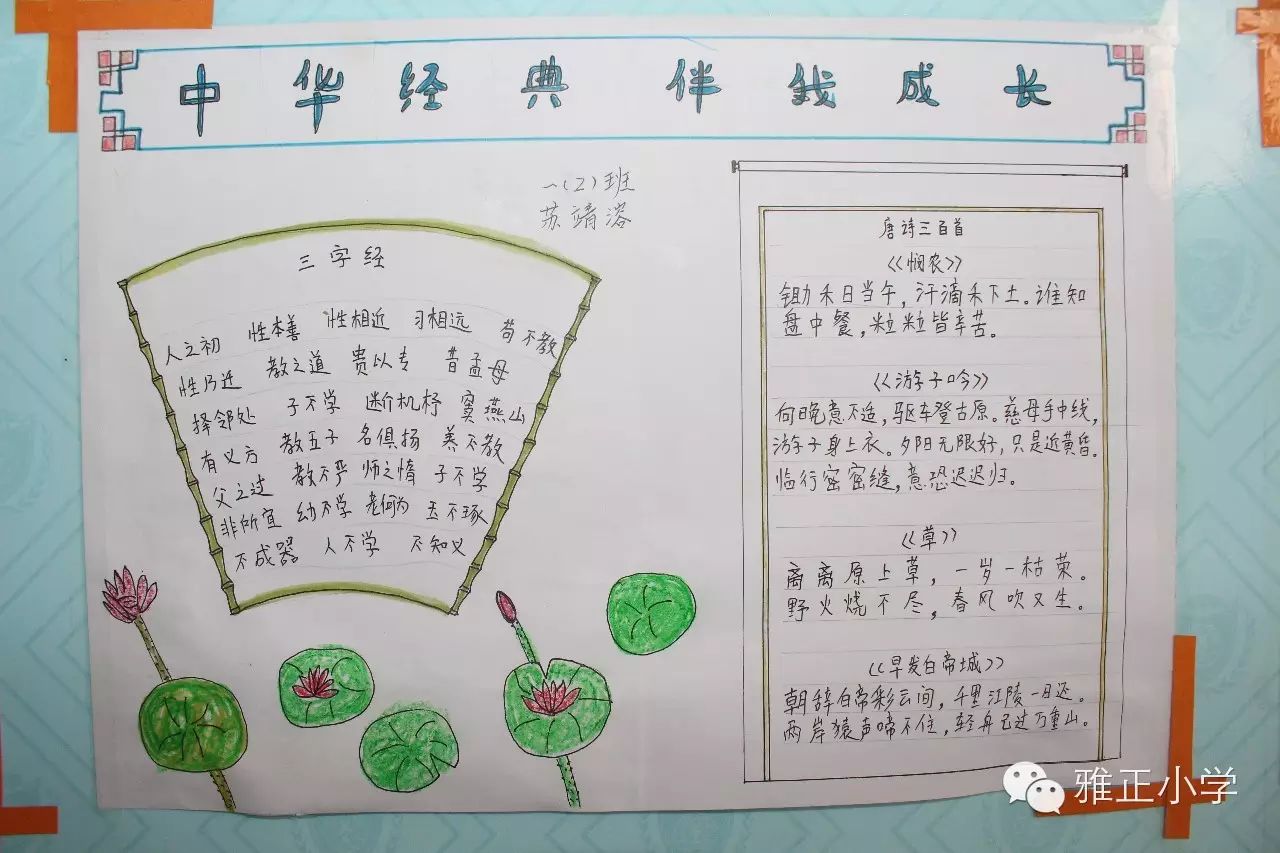 中华经典 伴我成长
一(2)班
苏靖溶
三字经
人之初 性本善 性相近 习相远 苟不教
性乃迁 教之道 贵以专 昔孟母
择邻处 子不学 断机杼 窦燕山
有义方 教五子 名俱扬 养不教
父之过 教不严 师之惰 子不学
非所宜 幼不学 老何为 玉不琢
不成器 人不学 不知义
唐诗三百首
《悯农》
锄禾日当午，汗滴禾下土。谁知
盘中餐，粒粒皆辛苦。
《游子吟》
向晚意不适，驱车登古原。慈母手中线，
游子身上衣。夕阳无限好，只是近黄昏。
临行密密缝，意恐迟迟归。
《草》
离离原上草，一岁一枯荣。
野火烧不尽，春风吹又生。
《早发白帝城》
朝辞白帝彩云间，千里江陵一日还。
两岸猿声啼不住，轻舟已过万重山。
雅正小学